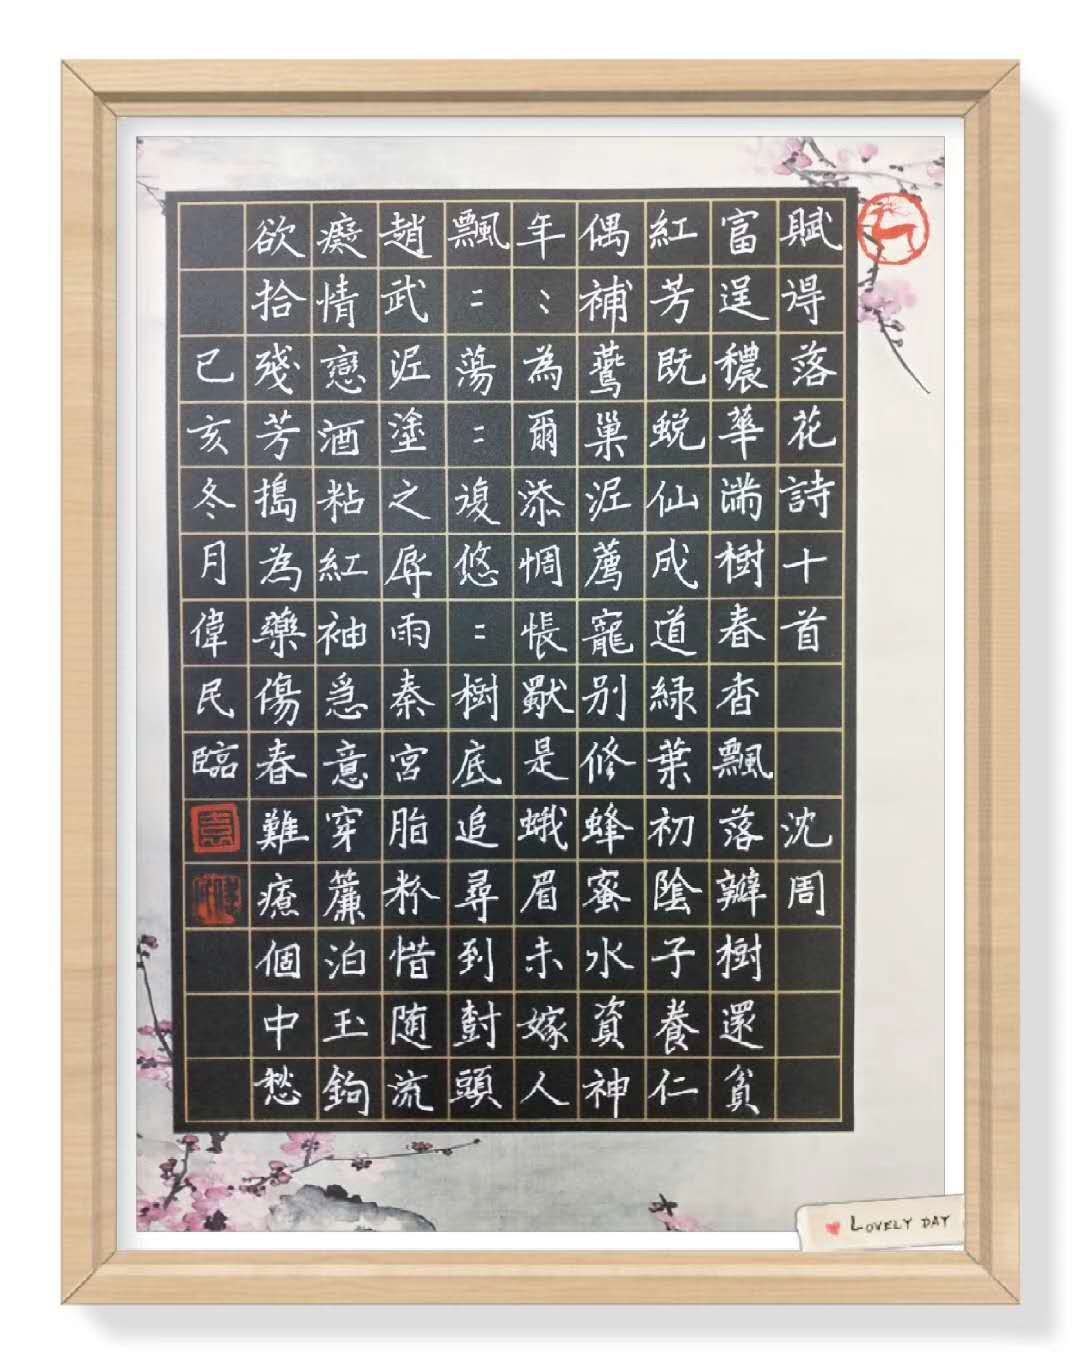 賦得落花詩十首 沈周
富逞穠華滿樹春香飄落瓣樹還貧
紅芳既蛻仙成道綠葉初陰子養仁
偶補鷰巢泥薦寵別修蜂蜜水資神
年〻為爾添惆悵獨是蛾眉未嫁人
飄=蕩=復悠=樹底追尋到尌頭
趙武泥塗之辱雨秦宮脂粉惜隨流
癡情戀酒粘紅袖急意穿簾泊玉鉤
欲拾殘芳搗為藥傷春難療個中愁
己亥冬月偉民臨
LOVELY DAY